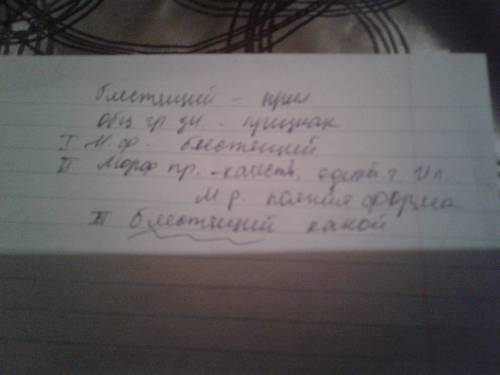 блестящий - прил
общ гр зн. - признак
I Н. ф. - блестящий
II Морф пр. - качеств, един. ч. Ип.
М р. полная форма
III блестящий какой